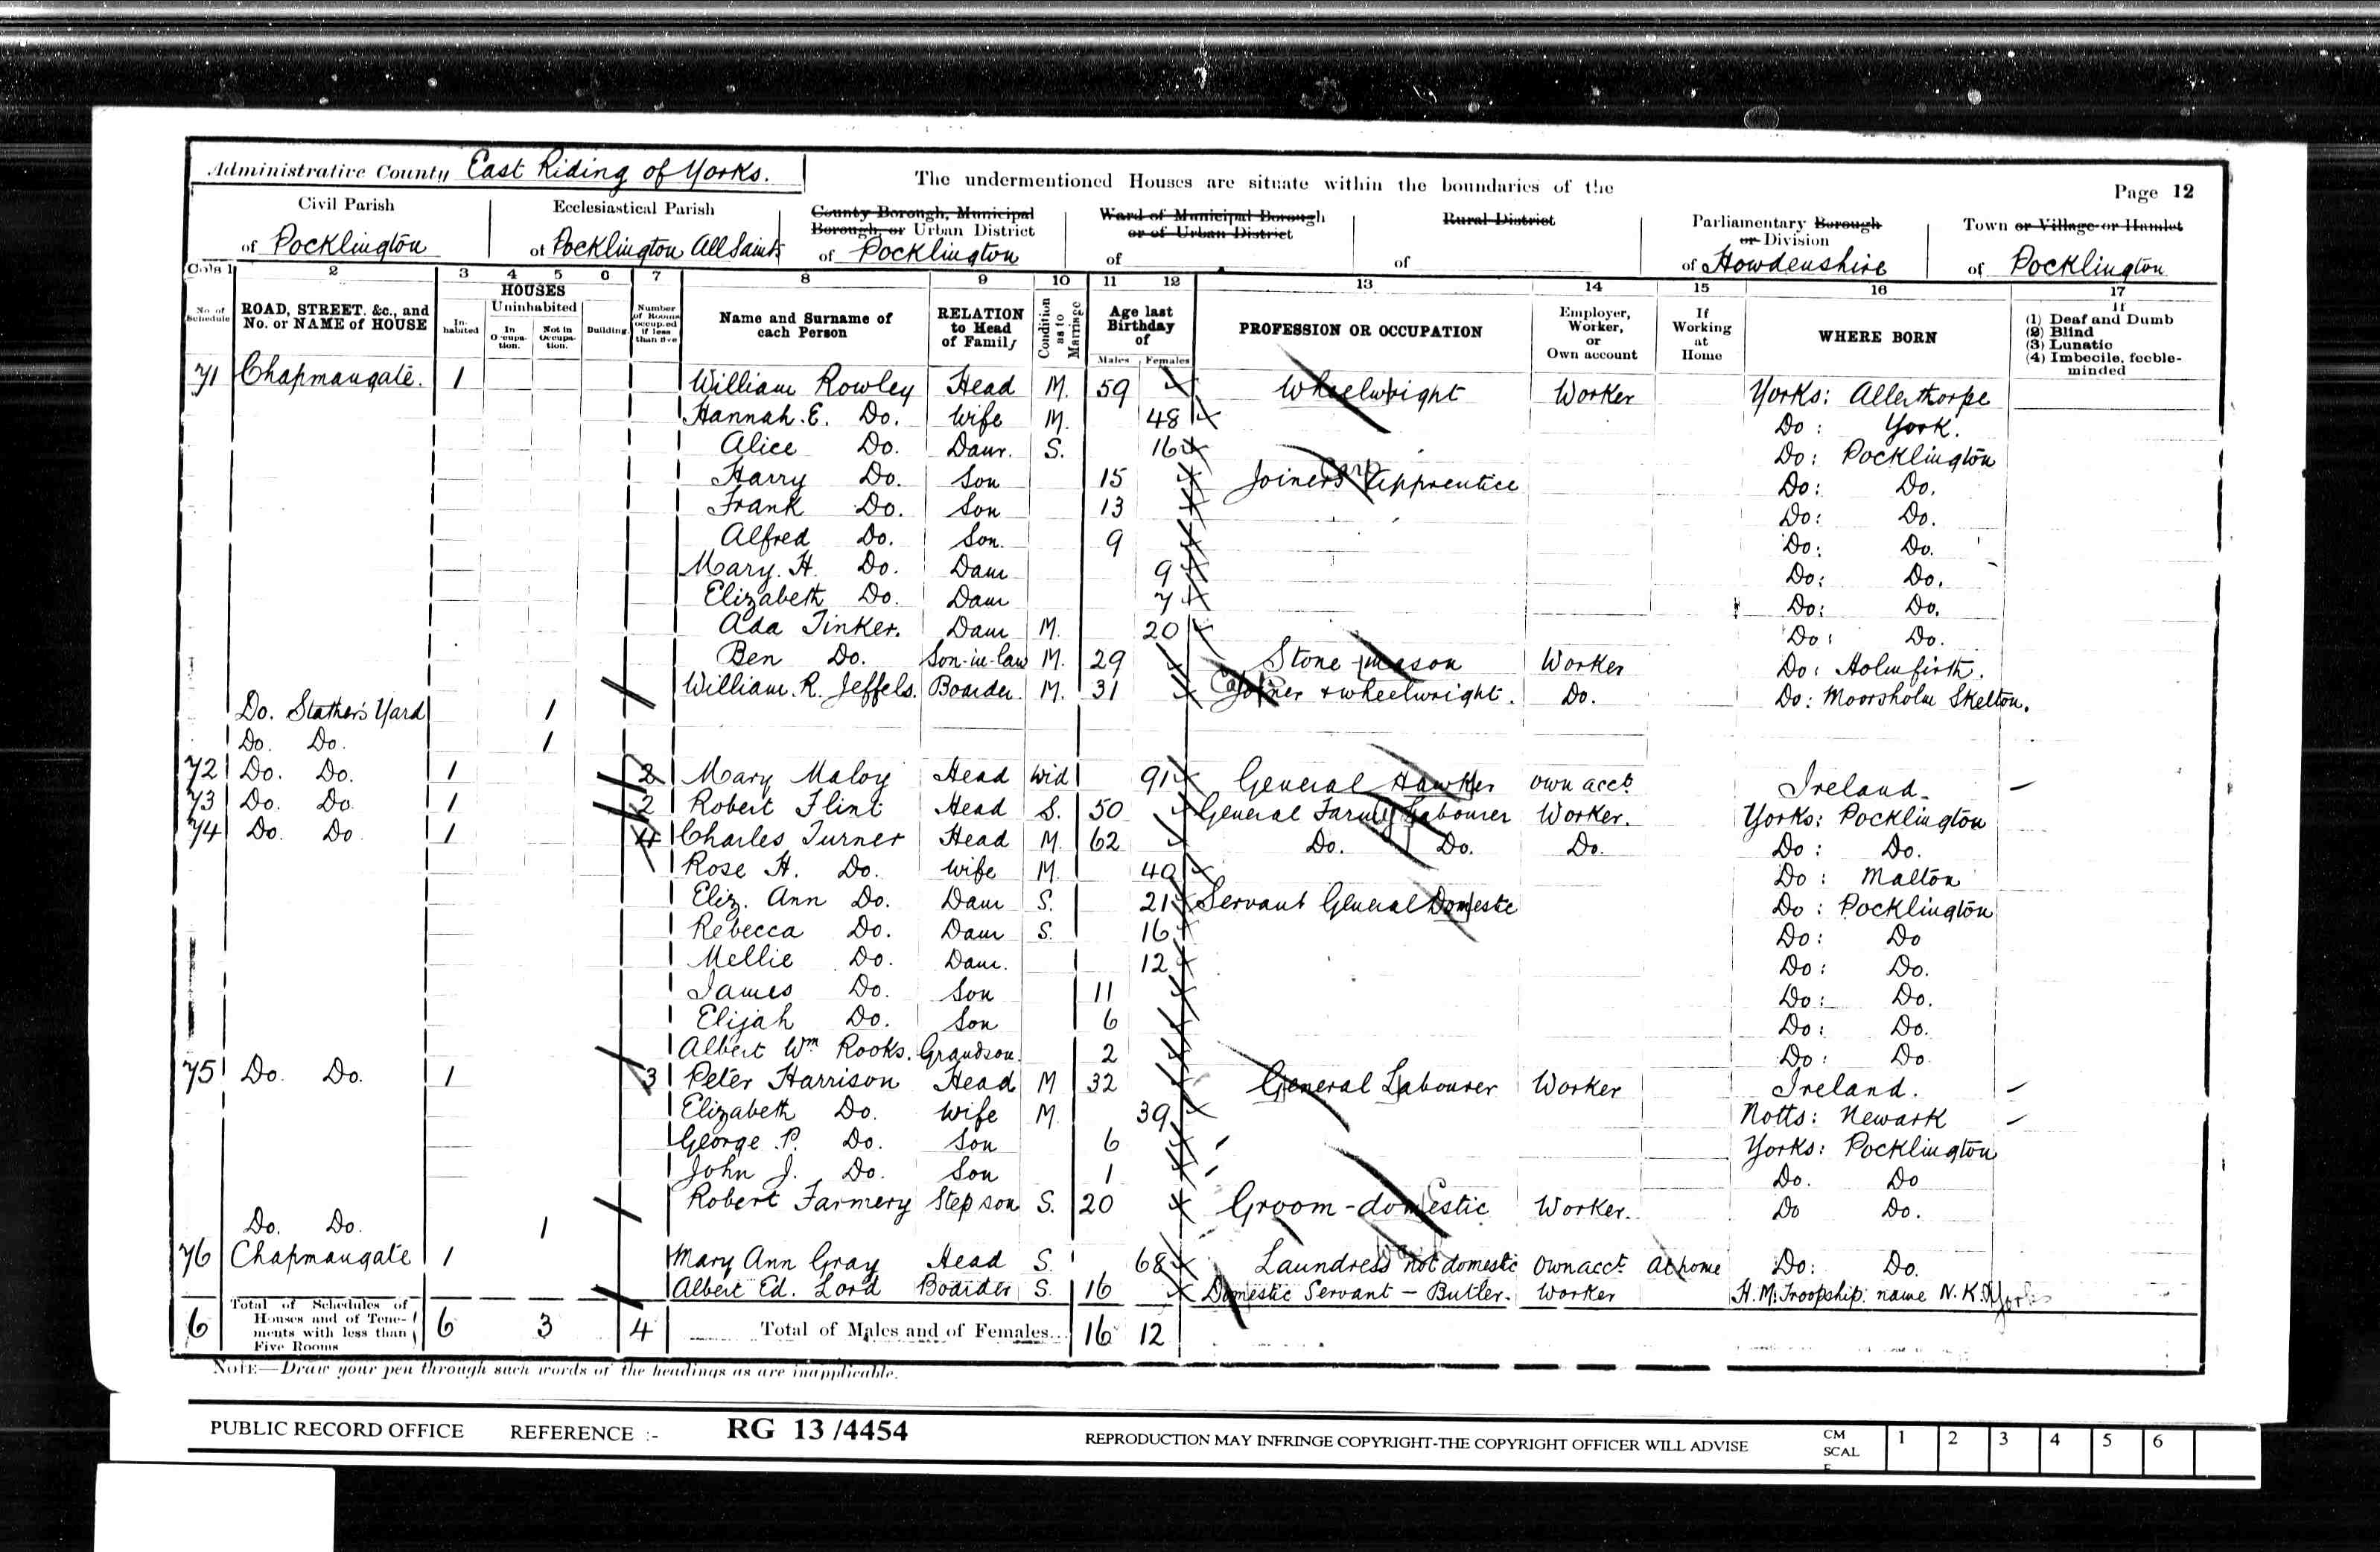 Administrative County East Riding of Yorks.
The undermentioned Houses are situate within the boundaries of the
Page 12
Civil Parish
of Pocklington
Ecclesiastical Parish
of Pocklington All Saints
County Borough, Municipal
Borough, or Urban District
of Pocklington
Ward of Municipal Borough
or of Urban District
of
Rural District
of
Parliamentary Borough
or Division
of Howdenshire
Town or Village or Hamlet
of Pocklington
Cols 1 2 3 4 5 6 7 8 9 10 11 12 13 14 15 16 17
No. of Schedule
ROAD, STREET, &c., and No. or NAME of HOUSE
HOUSES
Inhabited
Uninhabited
In Occupation.
Not in Occupation.
Building
Number of Rooms occupied if less than five
Name and Surname of each Person
RELATION to Head of Family
Condition as to Marriage
Age last Birthday of
Males Females
PROFESSION OR OCCUPATION
Employer, Worker, or Own account
If Working at Home
WHERE BORN
If
(1) Deaf and Dumb
(2) Blind
(3) Lunatic
(4) Imbecile, feeble-minded
71 Chapmangate. 1 William Rowley Head M. 59 Wheelwright Worker Yorks: Allerthorpe
Hannah. E. Do. Wife M. 48 Do: York.
Alice Do. Daur. S. 16 Do: Pocklington
Harry Do. Son 15 Joiners Apprentice Do: Do.
Frank Do. Son 13 Do: Do.
Alfred Do. Son. 9 Do: Do.
Mary. H. Do. Daur 9 Do: Do.
Elizabeth Do. Daur 7 Do: Do.
Ada Tinker. Daur M. 20 Do: Do.
Ben Do. Son-in-law M. 29 Stone mason Worker Do: Holmfirth.
William. R. Jeffels. Boarder M. 31 Joiner & wheelwright. Do. Do: Moorsholm Skelton.
Do. Stathers Yard 1
Do. Do. 1
72 Do. Do. 1 2 Mary Maloy Head Wid 91 General Hawker own acct. Ireland
73 Do. Do 1 2 Robert Flint Head S. 50 General Farm Labourer Worker. Yorks: Pocklington
74 Do. Do 1 4 Charles Turner Head M. 62 Do. Do. Do. Do: Do.
Rose H. Do. Wife M. 40 Do: Malton
Eliz. Ann Do. Daur S. 21 Servant General Domestic Do: Pocklington
Rebecca Do. Daur S. 16 Do: Do
Mellie Do. Daur. 12 Do: Do.
James Do. Son 11 Do: Do.
Elijah Do. Son 6 Do: Do.
Albert Wm Rooks. Grandson. 2 Do: Do
75 Do. Do. 1 3 Peter Harrison Head M 32 General Labourer Worker Ireland.
Elizabeth Do. Wife M. 39 Notts: Newark
George P. Do. Son 6 Yorks: Pocklington
John J. Do. Son 1 Do. Do
Robert Farmery Stepson S. 20 Groom - domestic Worker. Do Do.
Do. Do. 1
76 Chapmangate 1 Mary Ann Gray Head S. 68 Laundress not domestic own acct. at home Do: Do.
Albert Ed. Lord Boarder S. 16 Domestic Servant - Butler. Worker H.M. Troopship. name N.K.
6 Total of Schedules of Houses and of Tenements with less than Five Rooms 6 3 4 Total of Males and of Females... 16 12
NOTE—Draw your pen through such words of the headings as are inapplicable.
PUBLIC RECORD OFFICE REFERENCE :- RG 13 /4454
REPRODUCTION MAY INFRINGE COPYRIGHT-THE COPYRIGHT OFFICER WILL ADVISE
CM SCALE 1 2 3 4 5 6